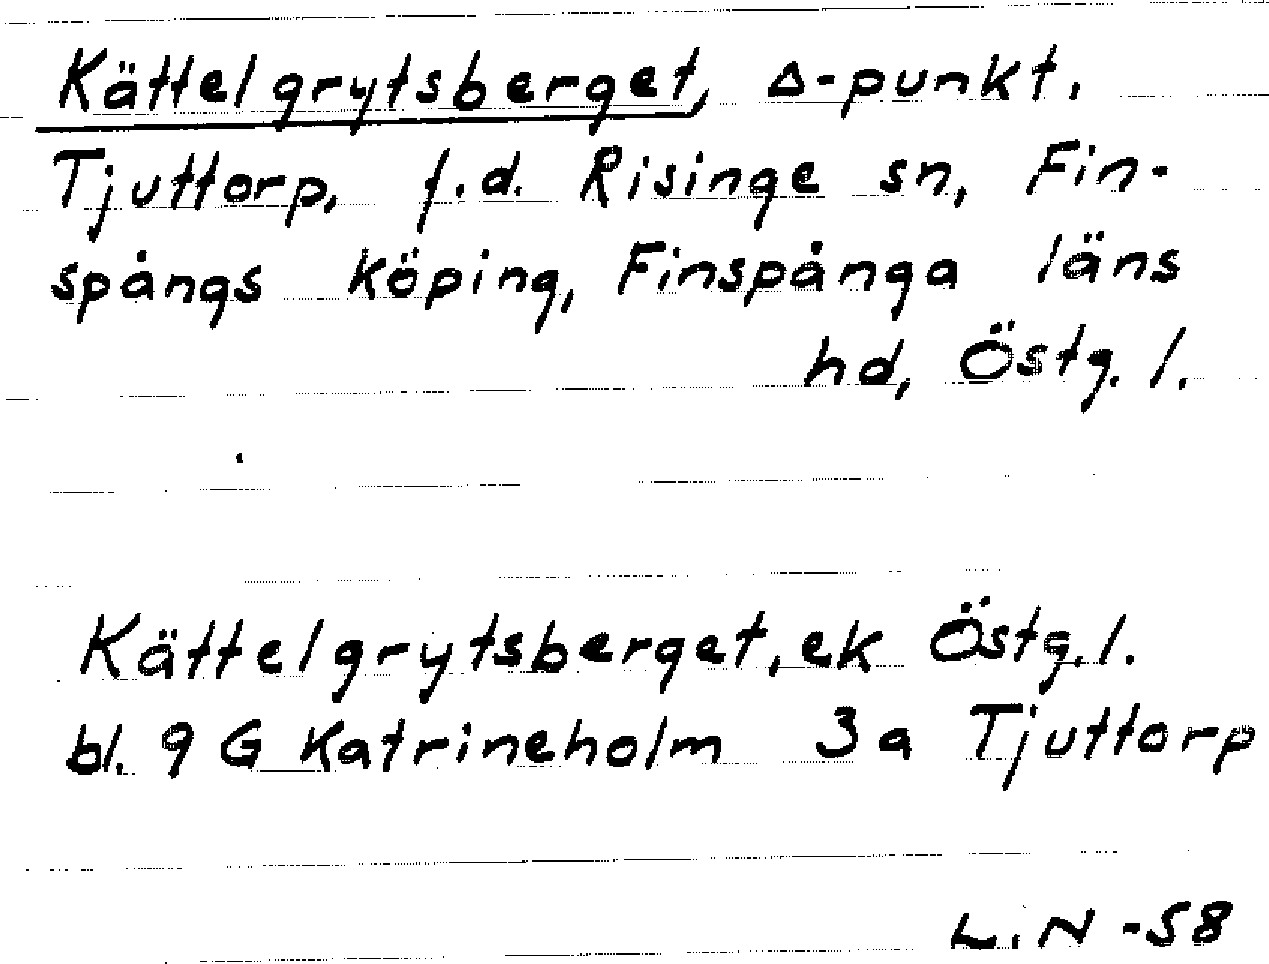 Kättelgrytsberget, Δ-punkt.
Tjuttorp, f.d. Risinge sn, Fin-
spångs köping, Finspånga läns
hd, Östg. l.
Kättelgrytsberget, ek Östg. l.
bl. 9 G Katrineholm 3 a Tjuttorp
L. N -58